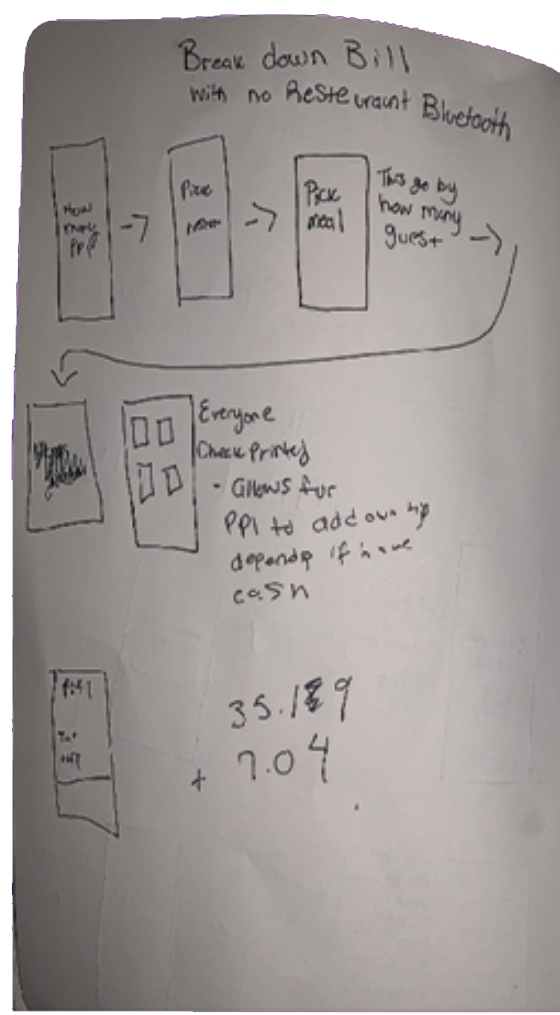 Break down Bill
with no Resteuraunt Bluetooth
How
many
PPl
Pick
Pick
meal
This go by
how many
guest
Everyone
Check Printed
- Allows for
PPl to add own tip
depending if have
cash
35.19
+ 7.04